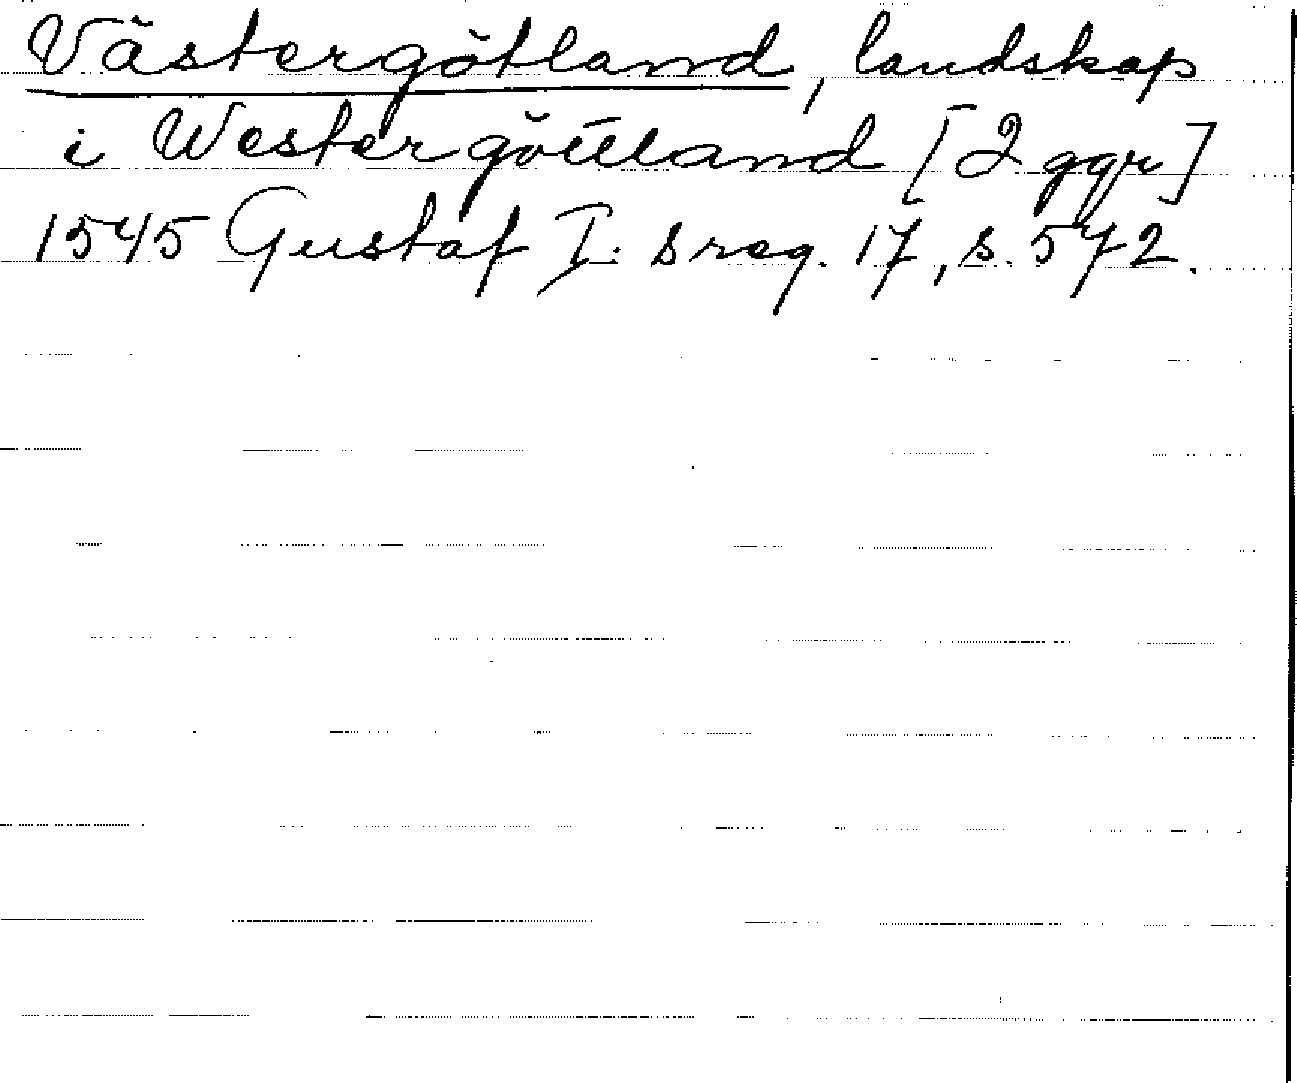 Västergötland, landskap
i Westergöttland [2 ggr]
1545 Gustaf I:s reg. 17, s. 572.